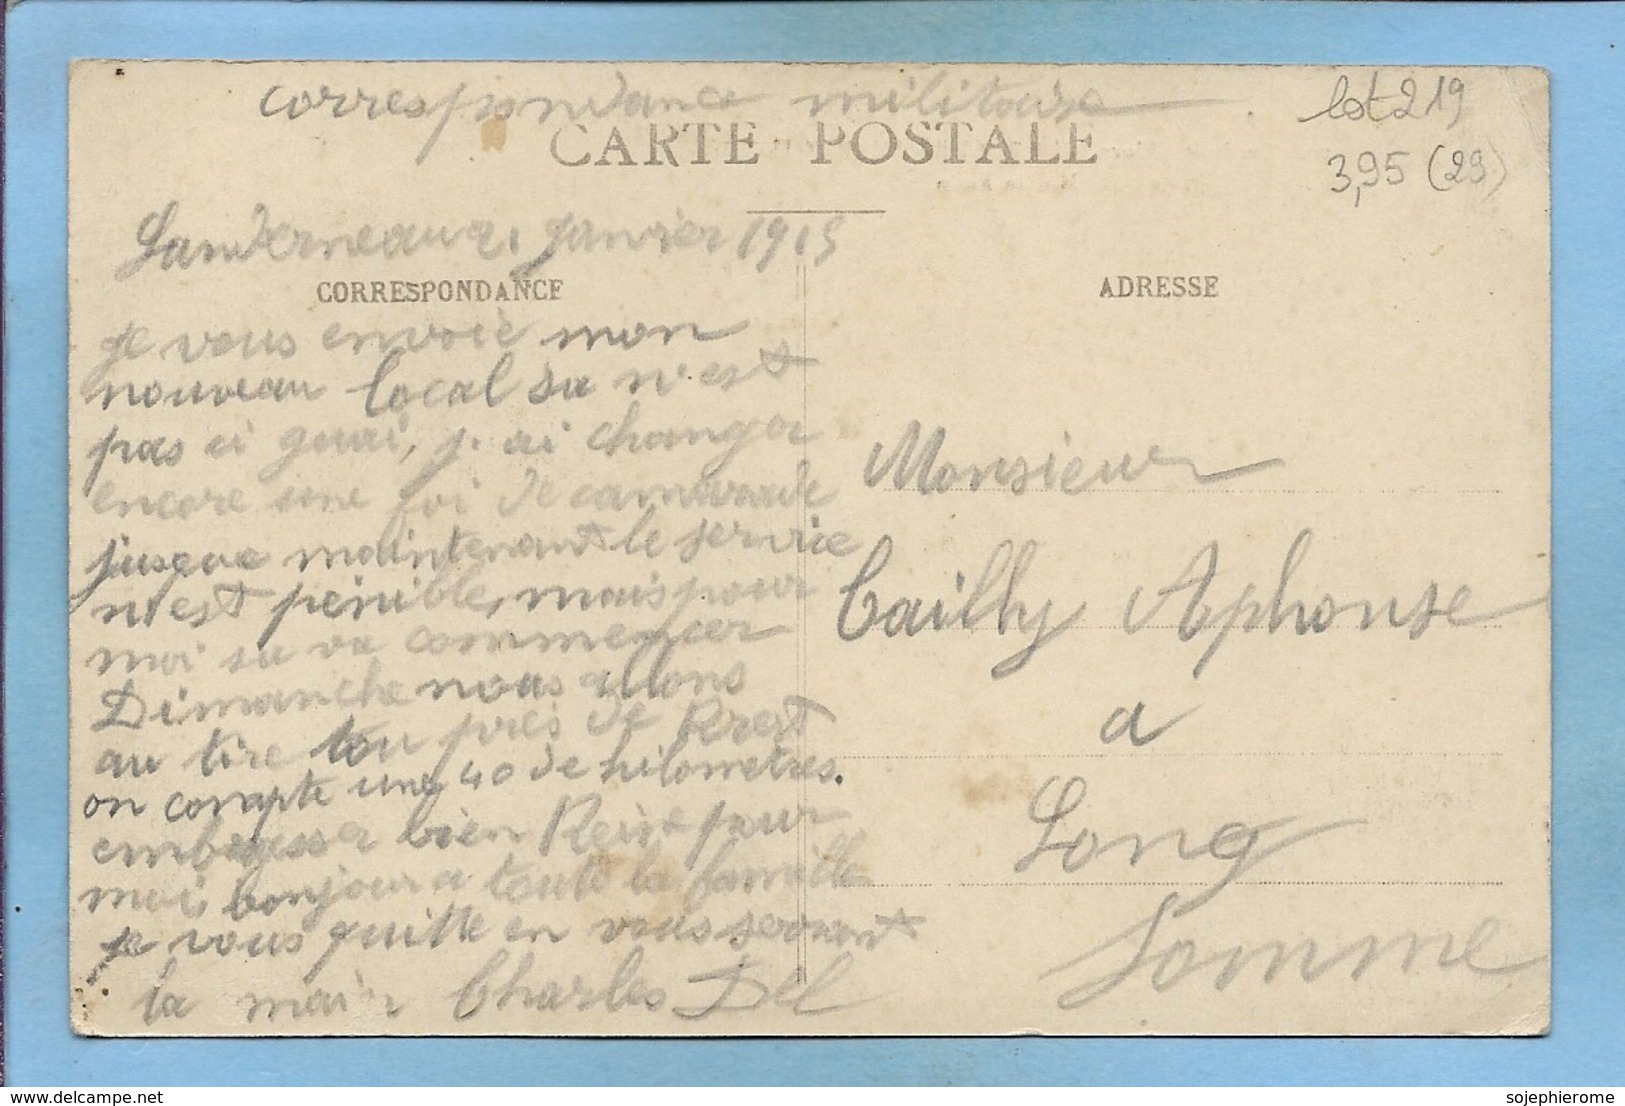 correspondance militaire
lot 219
CARTE POSTALE
3,95 (29)
Landerneau 2, Janvier 1915
CORRESPONDANCE
ADRESSE
je vous envoie mon
nouveau local sa n'est
pas ci guai, j. ai changer
encore une foi de camarade
jusqua maintenant le servic
n'est penible, mais pour
moi sa va commencer
Dimanche nous allons
au tire tou près de Brest
on compte une 40 de kilometres.
embrasser bien Reine pour
moi, bonjour a toute la famille
je vous quitte en vous serrant
la main Charles Del
Monsieur
Cailly Alphonse
a
Long
Somme
delcampe.net
sojephierome